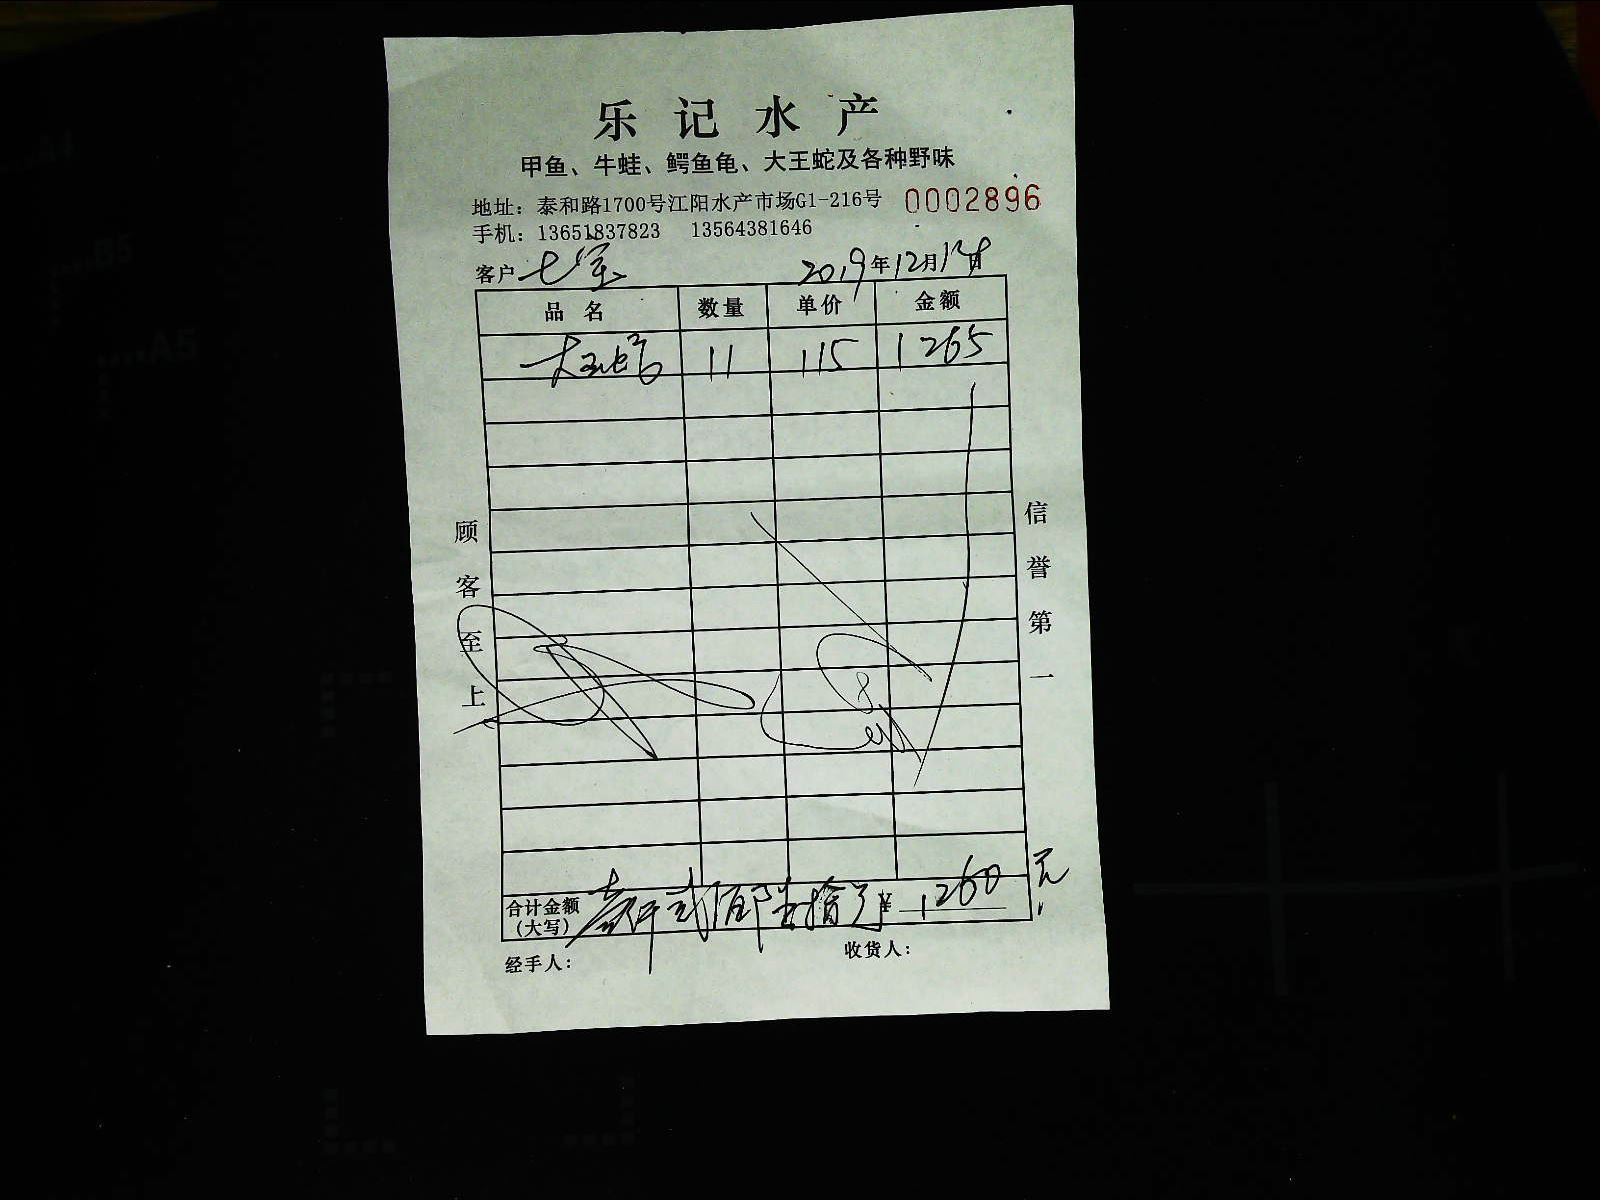 乐记水产
甲鱼、牛蛙、鳄鱼龟、大王蛇及各种野味
地址：泰和路1700号江阳水产市场G1-216号 0002896
手机：13651837823 13564381646
客户 七宝 2019年12月1日
品名 数量 单价 金额
大王蛇 11 115 1265
顾客至上
信誉第一
合计金额 壹仟贰佰 拾 ¥ 1260 元
(大写)
经手人： 收货人：